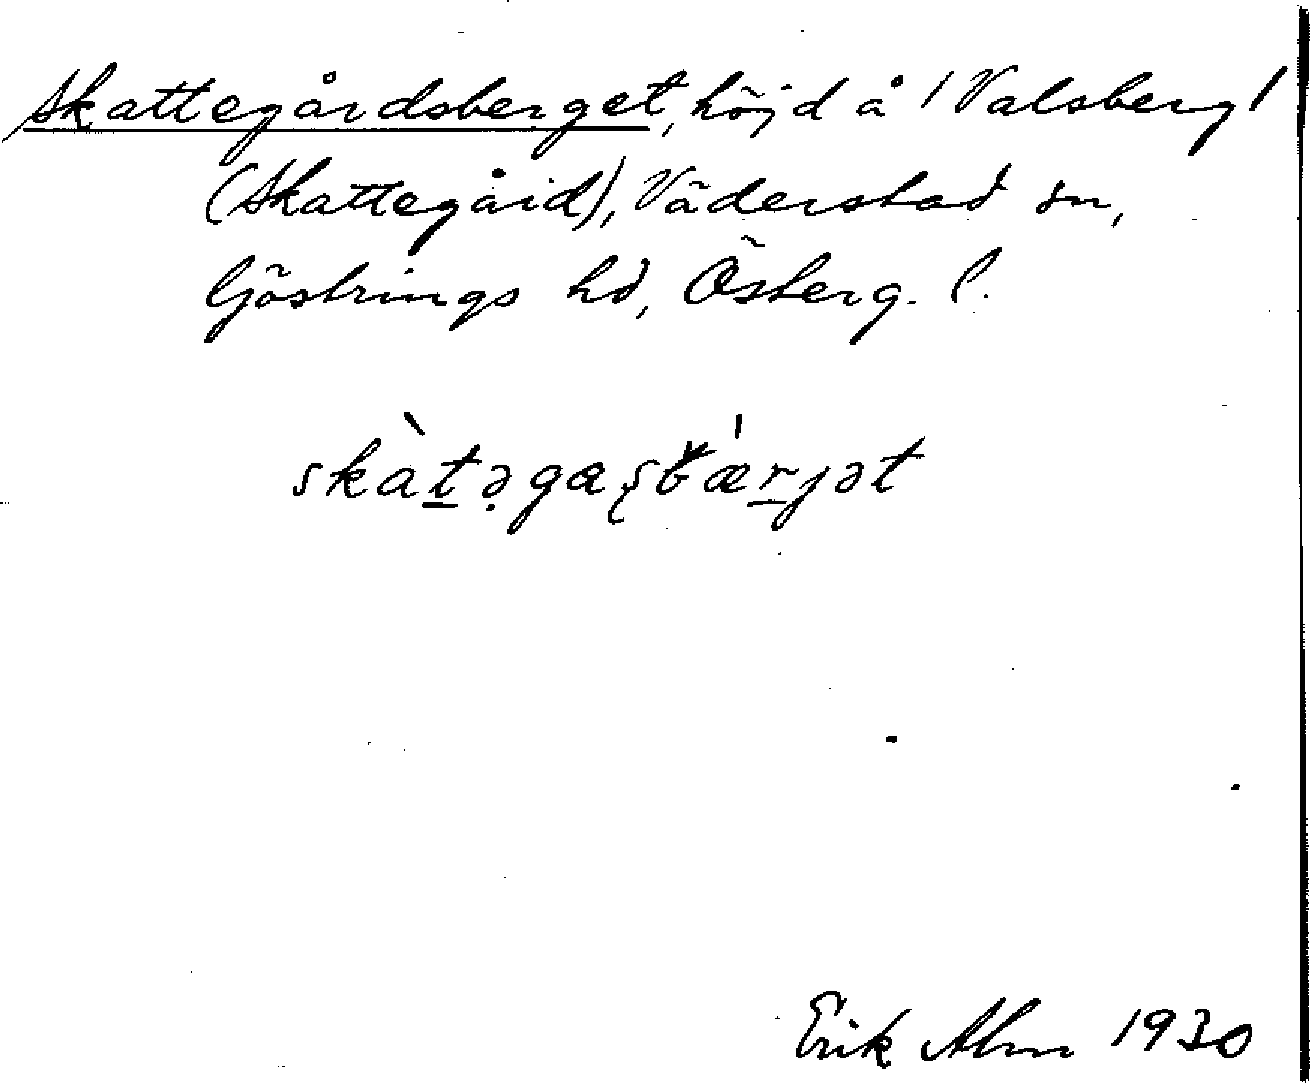 Skattegårdsberget, höjd å /Valsberg/
(Skattegård), Väderstad sn,
Göstrings hd, Österg. l.
skàt̠ə̣gaʂb̌'ær̠jət
Erik Alm 1930